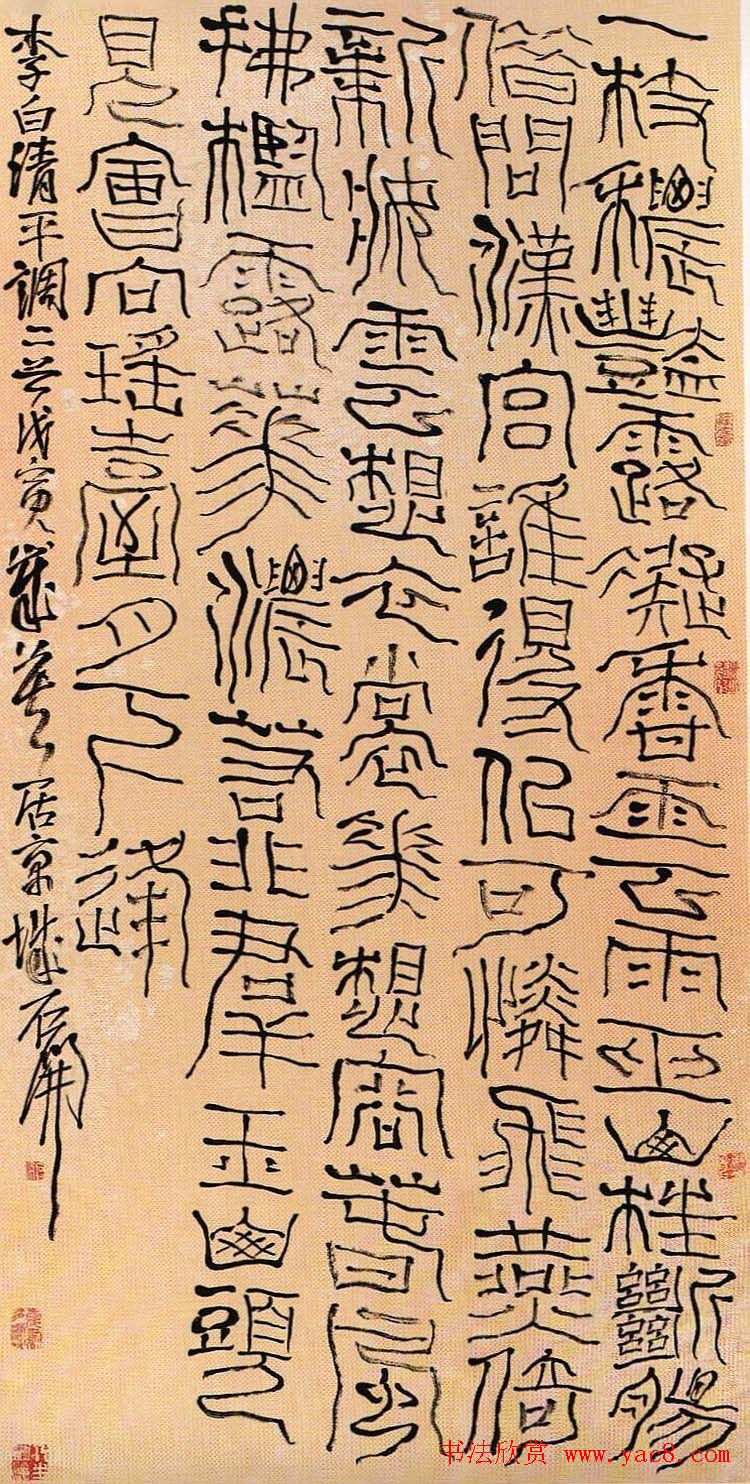 一枝穠豔露凝香雲雨巫山枉斷腸
借問漢宮誰得似可憐飛燕倚
新妝雲想衣裳花想容春風
拂檻露華濃若非群玉山頭
見會向瑤臺月下逢
李白清平調二首戊寅歲居京城石開
书法欣赏 www.yac8.com